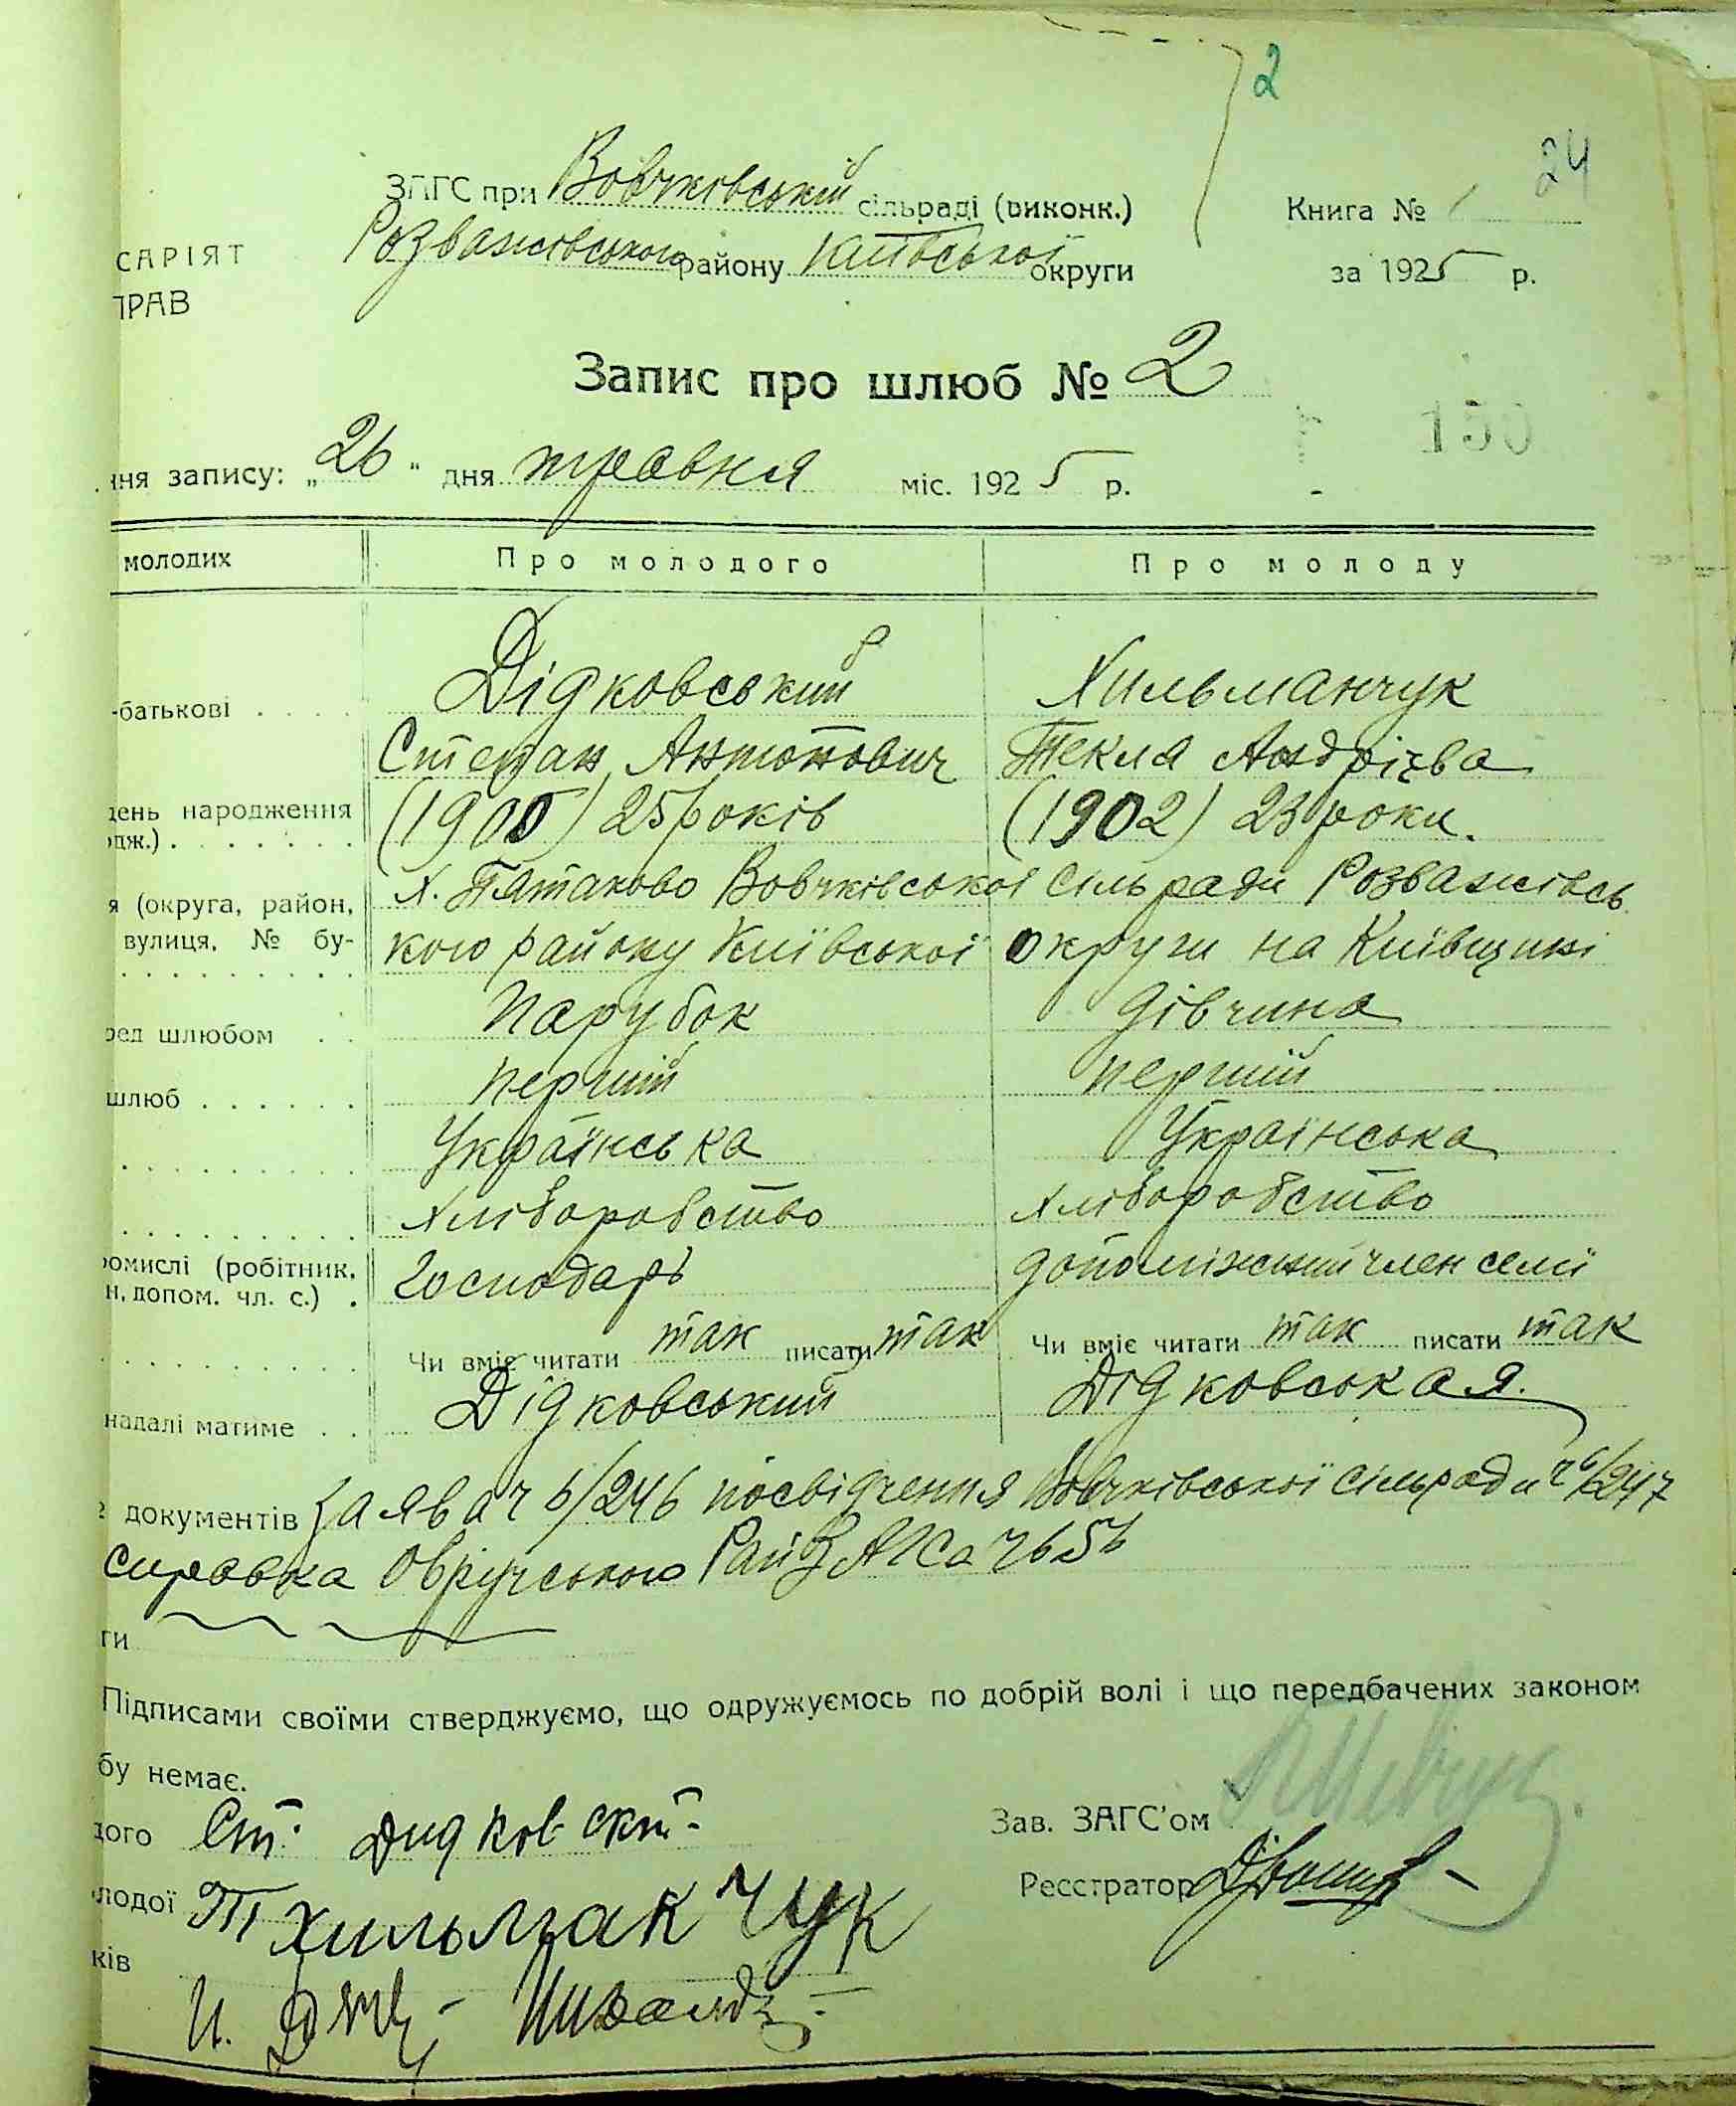 2
24
ЗАГС при Вовчківській сільраді (виконк.) Книга №
САРІЯТ Розважівського району Київської округи за 1925 р.
ПРАВ
Запис про шлюб № 2
150
ня запису: „26" дня травня міс. 1925 р.
молодих Про молодого Про молоду
-батькові . . . . Дідковський Хильманчук
Степан Антонович Текля Андрієва
день народження (1900) 25 років (1902) 23 роки.
дж.) . . . . . . .
я (округа, район, Х. Пятаково Вовчківської Сільради Розважівсь
вулиця, № бу- кого району Київської округи на Київщині
ред шлюбом . . Парубок дівчина
шлюб . . . . . . перший перший
. . . . . . . . . . Українська Українська
. . . . . . . . . . хліборобство хліборобство
ромислі (робітник, господарь допоміжний член семї
н, допом. чл. с.) .
. . . . . . . . . . Чи вміє читати так писати так Чи вміє читати так писати так
надалі матиме . . Дідковський Дідковська я.
документів Заява ч 6/246 посвідчення Вовчківської Сільради ч 6/247
справка Овручського РайЗАГСа ч 656
ги
Підписами своїми стверджуємо, що одружуємось по добрій волі і що передбачених законом
бу немає.
дого Ст. Дидковский Зав. ЗАГС'ом
лодої Т Хильманчук Реєстратор
ків
И.